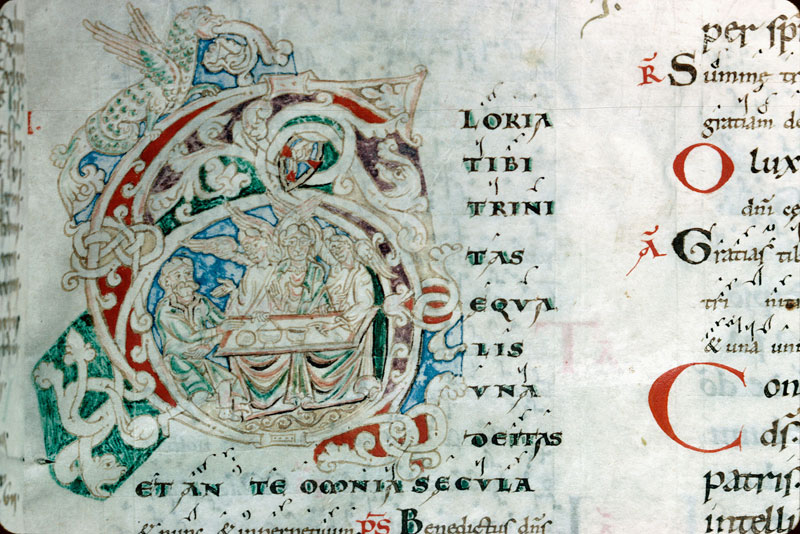 LORIA
TIBI
TRINI
TAS
EQVA
LIS
VNA
DEITAS
ET AN TE OMNIA SECVLA
& nunc & inperpetuum p̄s Benedictus dn̄s
per sp̄
R̄ Summe tri
gratiam de
O lux
dn̄i
ā Gratias tib
tri
& una uni
Con
ds̄
patris
intelli